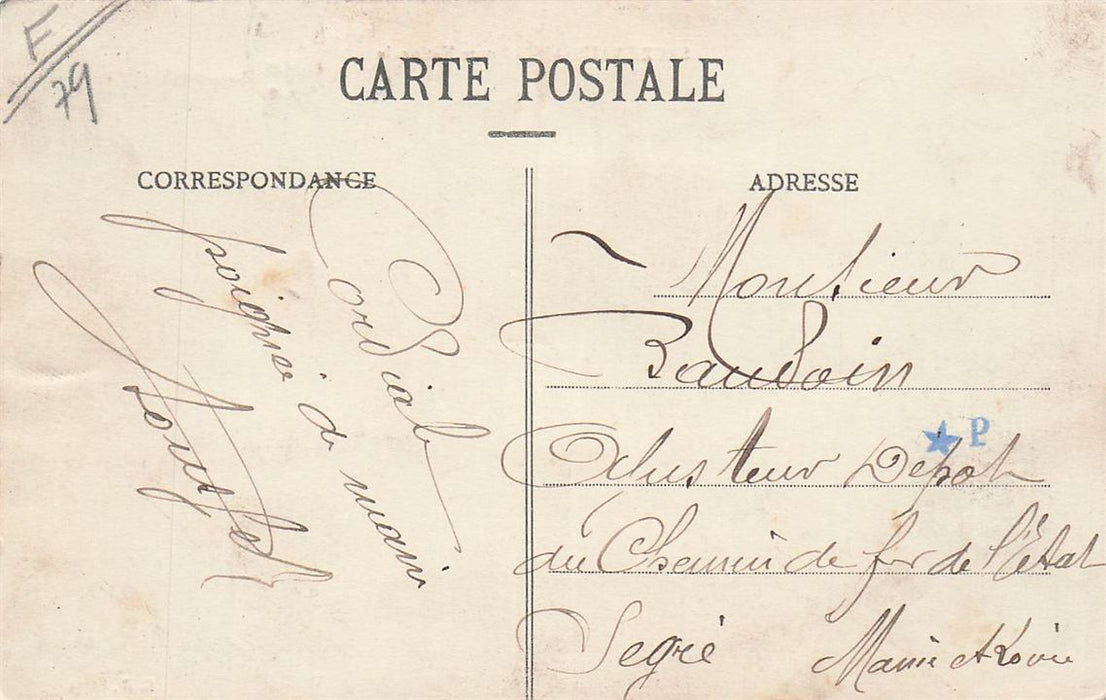 F
79
CARTE POSTALE
CORRESPONDANCE
ADRESSE
Cordial
poignée de main
Monsieur
Baudoin
★ P
Ajusteur Dépot
du Chemin de fer de l'État
Segré Maine et Loire